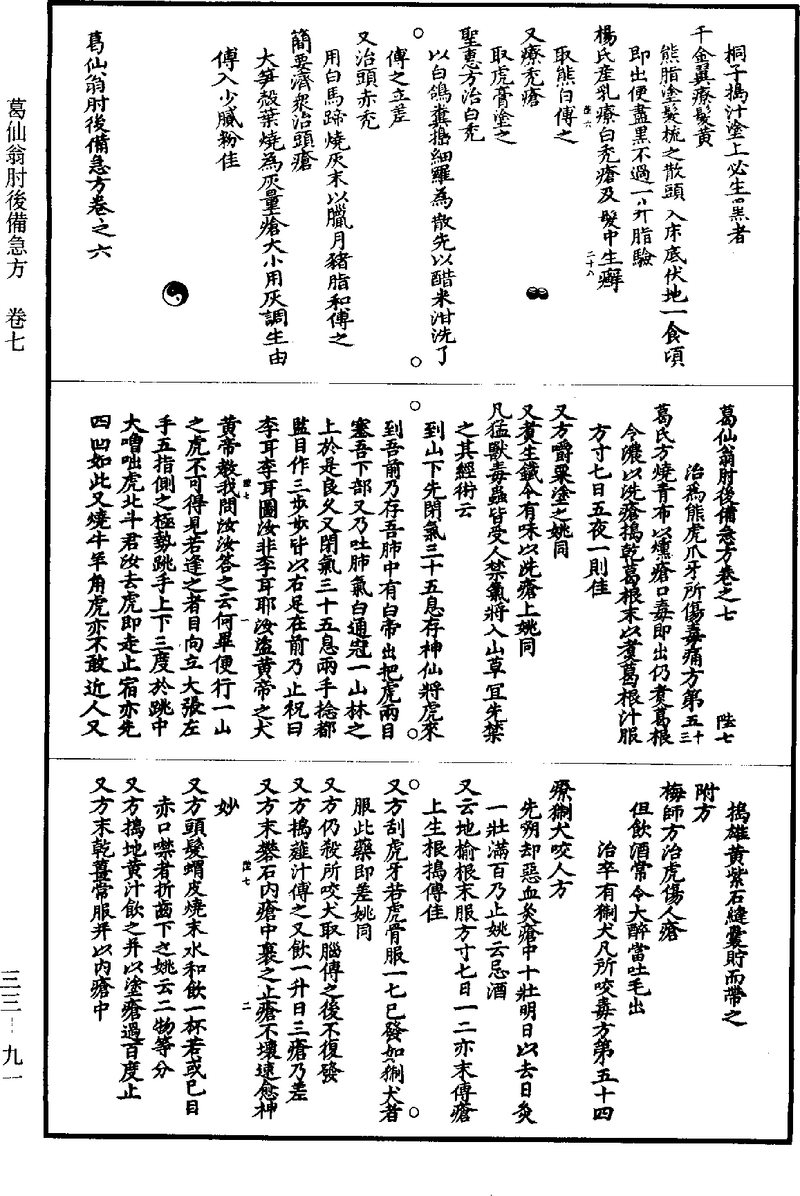 葛仙翁肘後備急方　卷七
三三—九一
桐子搗汁塗上必生黑者
千金翼療髮黃
熊脂塗髮梳之散頭入床底伏地一食頃
即出便盡黑不過一升脂驗
楊氏産乳療白禿瘡及髮中生癬
取熊白傅之
又療禿瘡
取虎膏塗之
聖惠方治白禿
以白鴿糞搗細羅為散先以醋米泔洗了
傅之立差
又治頭赤禿
用白馬蹄燒灰末以臘月豬脂和傅之
簡要濟衆治頭瘡
大笋殼葉燒為灰量瘡大小用灰調生由
傅入少膩粉佳
葛仙翁肘後備急方卷之六
葛仙翁肘後備急方卷之七　陛七
治為熊虎爪牙所傷毒痛方第五十三
葛氏方燒青布以燻瘡口毒即出仍煮葛根
令濃以洗瘡搗乾葛根末以煮葛根汁服
方寸七日五夜一則佳
又方嚼粟塗之姚同
又煮生鐵令有味以洗瘡上姚同
凡猛獸毒蟲皆受人禁氣將入山草宜先禁
之其經術云
到山下先閉氣三十五息存神仙將虎來
到吾前乃存吾肺中有白帝出把虎兩目
塞吾下部又乃吐肺氣白通冠一山林之
上於是良久又閉氣三十五息兩手捻都
監目作三步步皆以右足在前乃止祝曰
李耳李耳圖汝非李耳耶汝盜黃帝之犬
黃帝教我問汝汝答之云何畢便行一山
之虎不可得見若逢之者目向立大張左
手五指側之極勢跳手上下三度於跳中
大喚咄虎北斗君汝去虎即走止宿亦先
四凹如此又燒牛羊角虎亦不敢近人又
搗雄黃紫石縫囊貯而帶之
附方
梅師方治虎傷人瘡
但飲酒常令大醉當吐毛出
治卒有猘犬凡所咬毒方第五十四
療猘犬咬人方
先嗍却惡血灸瘡中十壯明日以去日灸
一壯滿百乃止姚云忌酒
又云地榆根末服方寸七日一二亦末傅瘡
上生根搗傅佳
又方刮虎牙若虎骨服一七已發如猘犬者
服此藥即差姚同
又方仍殺所咬犬取腦傅之後不復發
又方搗薤汁傅之又飲一升日三瘡乃差
又方末礬石内瘡中裹之止瘡不壞速愈神
妙
又方頭髮蝟皮燒末水和飲一杯若或已目
赤口噤者折齒下之姚云二物等分
又方搗地黃汁飲之并以塗瘡過百度止
又方末乾薑常服并以内瘡中